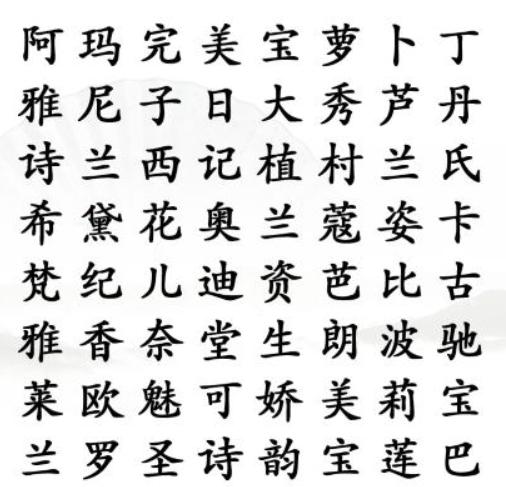 阿玛完美宝萝卜丁
雅尼子日大秀芦丹
诗兰西记植村兰氏
希黛花奥兰蔻姿卡
梵纪儿迪资芭比古
雅香奈堂生朗波驰
莱欧魅可娇美莉宝
兰罗圣诗韵宝莲巴